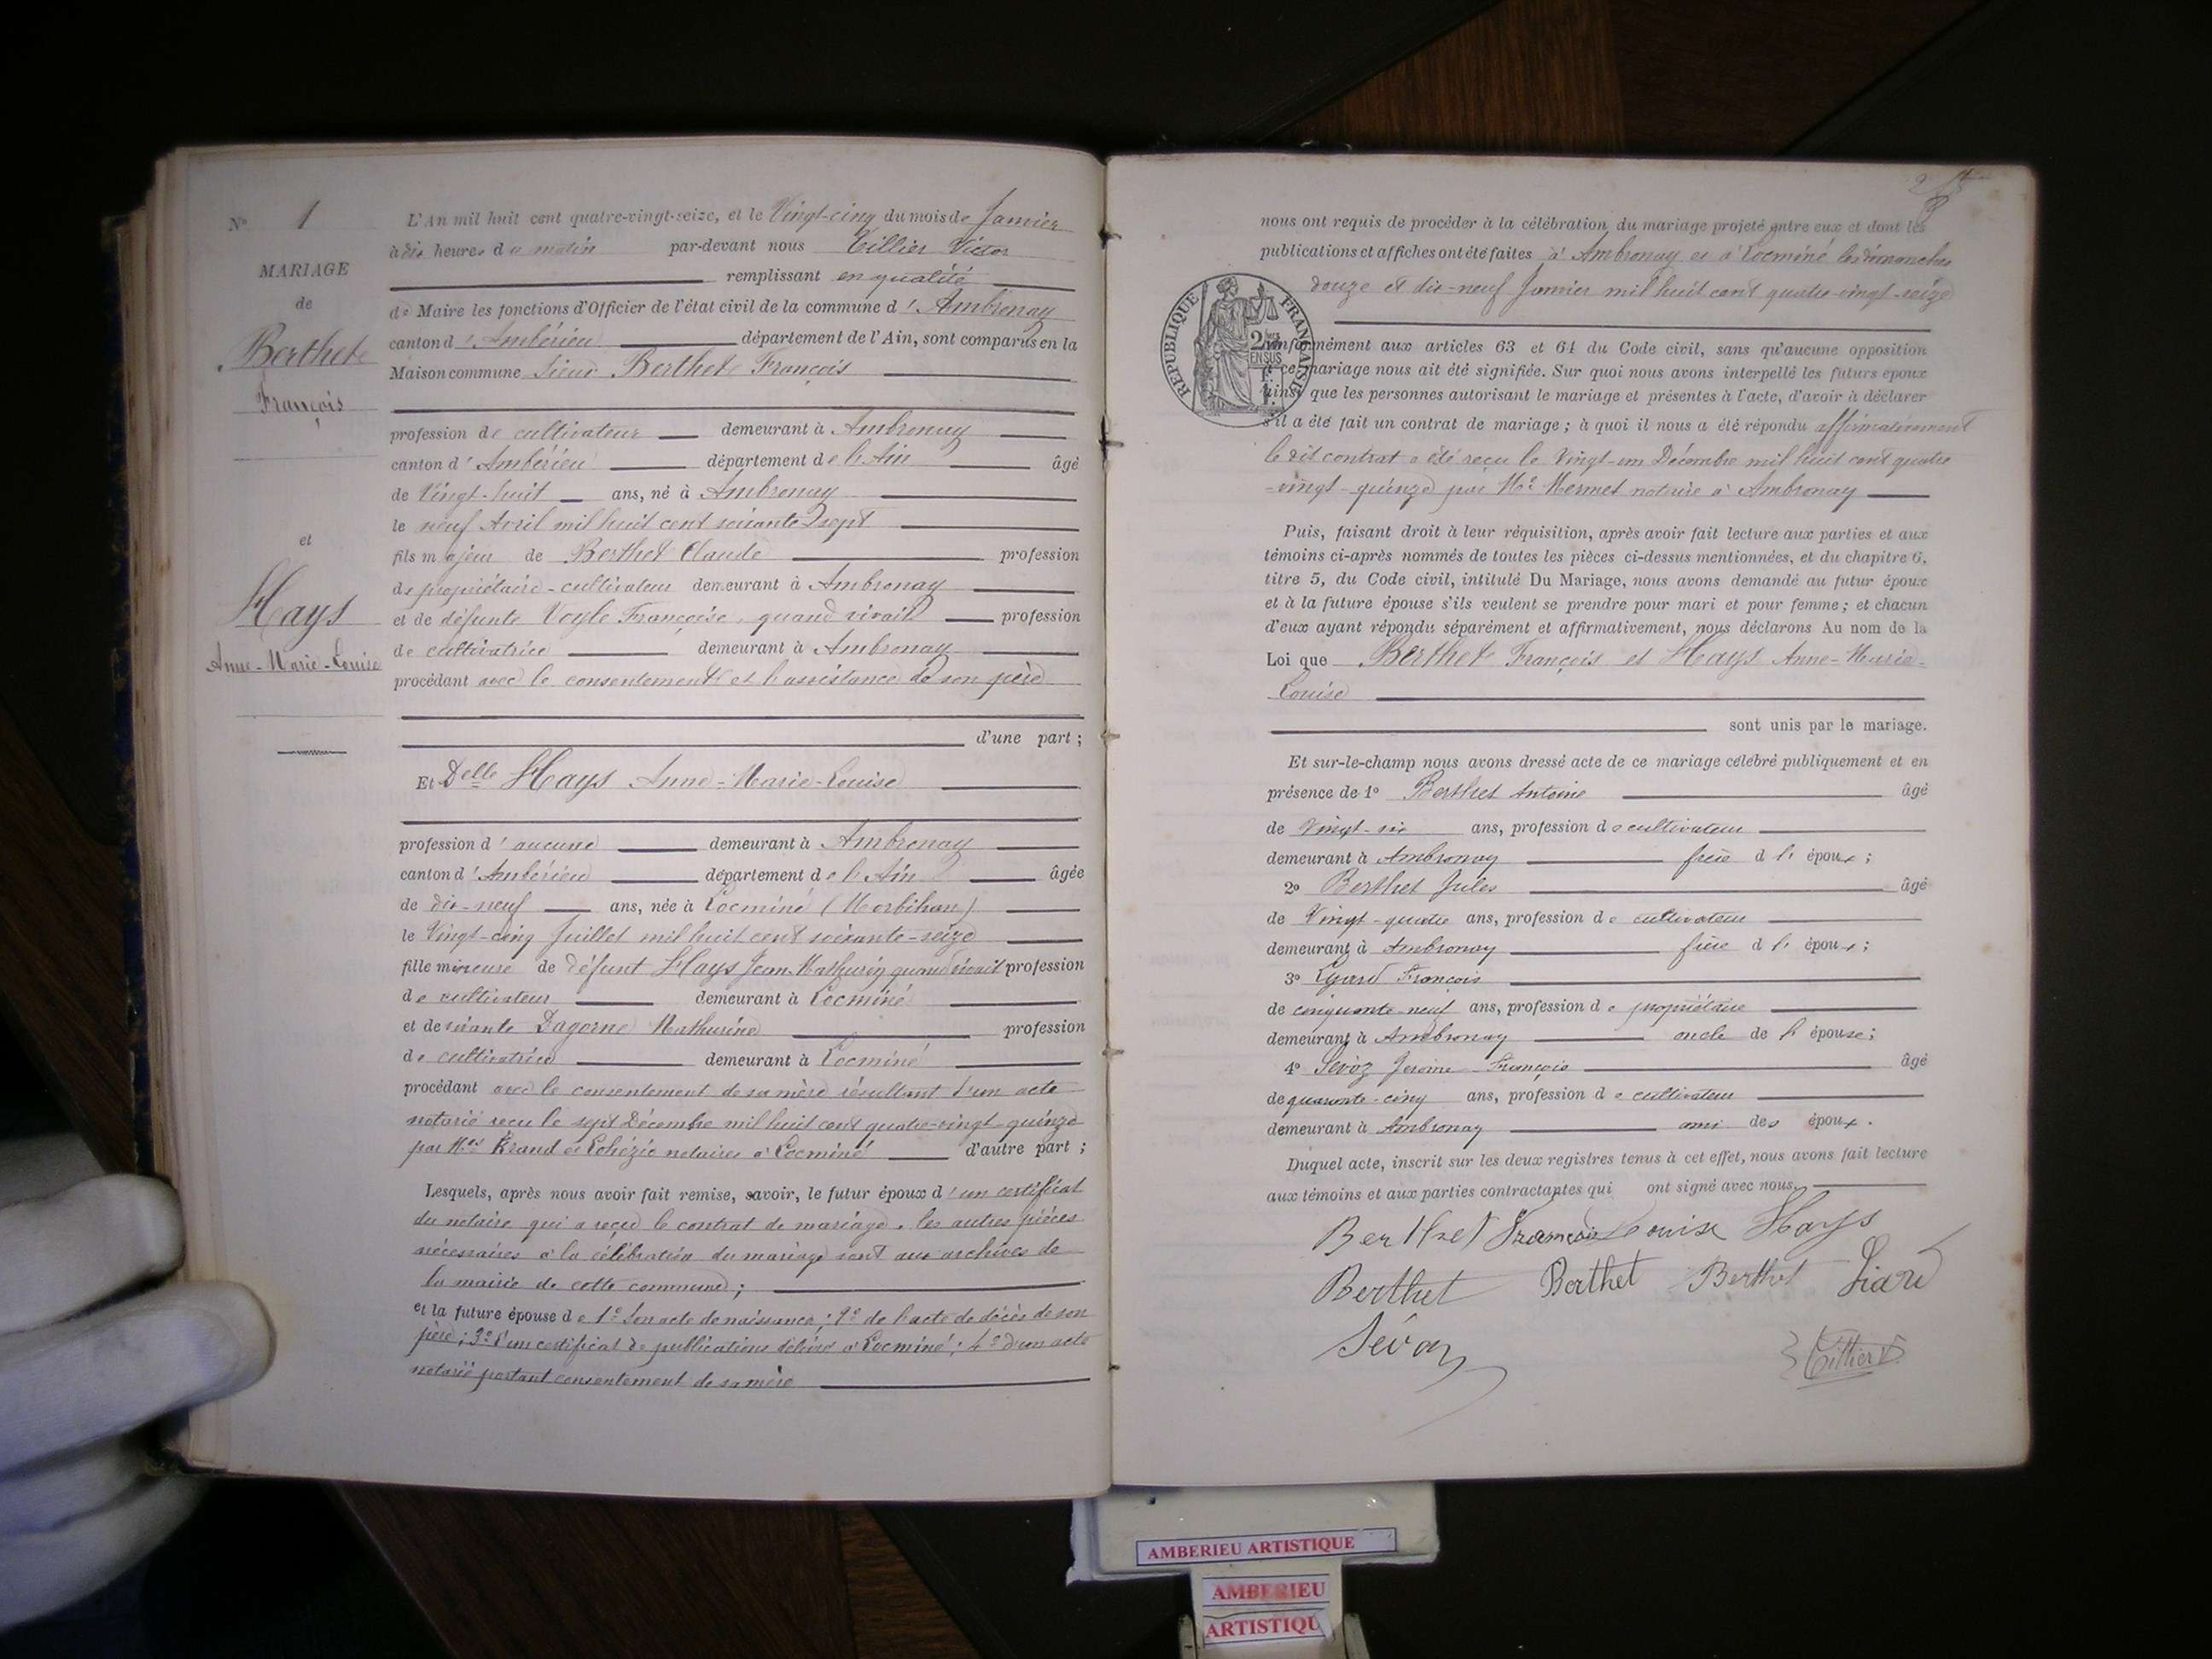 N° 1
MARIAGE
de
Berthet
François
et
Hays
Anne-Marie-Louise
L'An mil huit cent quatre-vingt-seize, et le Vingt-cinq du mois de Janvier
à dix heures du matin par-devant nous Tillier Victor
remplissant en qualité
de Maire les fonctions d'Officier de l'état civil de la commune d'Ambronay
canton d'Ambérieu département de l'Ain, sont comparus en la
Maison commune Sieur Berthet François
profession de cultivateur demeurant à Ambronay
canton d'Ambérieu département de l'Ain âgé
de Vingt-huit ans, né à Ambronay
le neuf Avril mil huit cent soixante-sept
fils majeur de Berthet Claude profession
de propriétaire-cultivateur demeurant à Ambronay
et de défunte Voyle Françoise, quand vivait profession
de cultivatrice demeurant à Ambronay
procédant avec le consentement et l'assistance de son père
d'une part ;
Et Delle Hays Anne-Marie-Louise
profession d'aucune demeurant à Ambronay
canton d'Ambérieu département de l'Ain âgée
de dix-neuf ans, née à Locminé (Morbihan)
le Vingt-cinq Juillet mil huit cent soixante-seize
fille mineure de défunt Hays Jean-Mathurin quand vivait profession
de cultivateur demeurant à Locminé
et de vivante Dagorne Mathurine profession
de cultivatrice demeurant à Locminé
procédant avec le consentement de sa mère résultant d'un acte
notarié reçu le sept Décembre mil huit cent quatre-vingt-quinze
par Mes et notaires à Locminé d'autre part ;
Lesquels, après nous avoir fait remise, savoir, le futur époux d'un certificat
du notaire qui a reçu le contrat de mariage, les autres pièces
nécessaires à la célébration du mariage sont aux archives de
la mairie de cette commune ;
et la future épouse de 1° Son acte de naissance ; 2° de l'acte de décès de son
père ; 3° d'un certificat de publications délivré à Locminé ; 4° d'un acte
notarié portant consentement de sa mère
nous ont requis de procéder à la célébration du mariage projeté entre eux et dont les
publications et affiches ont été faites à Ambronay et à Locminé les dimanches
douze et dix-neuf Janvier mil huit cent quatre-vingt-seize
RÉPUBLIQUE FRANÇAISE
EN SUS
conformément aux articles 63 et 64 du Code civil, sans qu'aucune opposition
à ce mariage nous ait été signifiée. Sur quoi nous avons interpellé les futurs époux
ainsi que les personnes autorisant le mariage et présentes à l'acte, d'avoir à déclarer
s'il a été fait un contrat de mariage ; à quoi il nous a été répondu affirmativement
le dit contrat a été reçu le Vingt-un Décembre mil huit cent quatre
-vingt-quinze par Me Mermet notaire à Ambronay
Puis, faisant droit à leur réquisition, après avoir fait lecture aux parties et aux
témoins ci-après nommés de toutes les pièces ci-dessus mentionnées, et du chapitre 6,
titre 5, du Code civil, intitulé Du Mariage, nous avons demandé au futur époux
et à la future épouse s'ils veulent se prendre pour mari et pour femme ; et chacun
d'eux ayant répondu séparément et affirmativement, nous déclarons Au nom de la
Loi que Berthet François et Hays Anne-Marie-
Louise
sont unis par le mariage.
Et sur-le-champ nous avons dressé acte de ce mariage célébré publiquement et en
présence de 1° Berthet Antoine âgé
de Vingt-six ans, profession de cultivateur
demeurant à Ambronay frère de l'époux ;
2° Berthet Jules âgé
de Vingt-quatre ans, profession de cultivateur
demeurant à Ambronay frère de l'époux ;
3° François
de cinquante-neuf ans, profession de propriétaire
demeurant à Ambronay oncle de l'épouse ;
4° Sevoz Jérôme-François âgé
de quarante-cinq ans, profession de cultivateur
demeurant à Ambronay ami des époux.
Duquel acte, inscrit sur les deux registres tenus à cet effet, nous avons fait lecture
aux témoins et aux parties contractantes qui ont signé avec nous.
Berthet François Louise Hays
Berthet Berthet Berthet
Tillier V.
AMBERIEU ARTISTIQUE
AMBERIEU
ARTISTIQU